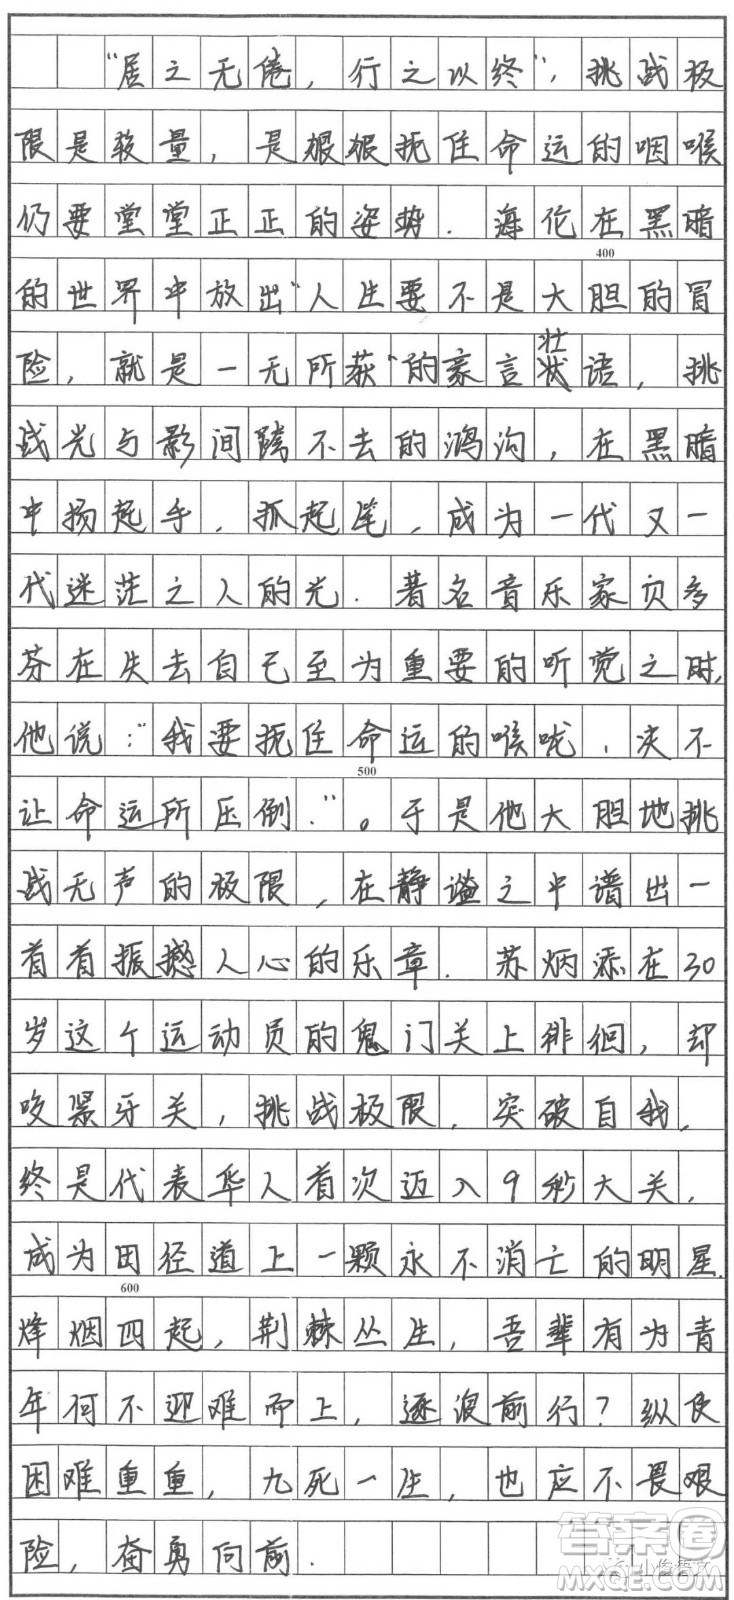 "居之无倦，行之以终"，挑战极
限是较量，是狠狠扼住命运的咽喉
仍要堂堂正正的姿势.海伦在黑暗
400
的世界中放出"人生要不是大胆的冒
险，就是一无所获"的豪言壮语，挑
战光与影间跨不去的鸿沟，在黑暗
中扬起手，抓起笔，成为一代又一
代迷茫之人的光.著名音乐家贝多
芬在失去自己至为重要的听觉之时,
他说："我要扼住命运的喉咙，决不
500
让命运所压倒."。于是他大胆地挑
战无声的极限，在静谧之中谱出一
首首振撼人心的乐章.苏炳添在30
岁这个运动员的鬼门关上徘徊，却
咬紧牙关，挑战极限，突破自我，
终是代表华人首次迈入9秒大关，
成为田径道上一颗永不消亡的明星.
600
烽烟四起，荆棘丛生，吾辈有为青
年何不迎难而上，逐浪前行？纵使
困难重重，九死一生，也应不畏艰
险，奋勇向前.
答案圈
MXQE.COM